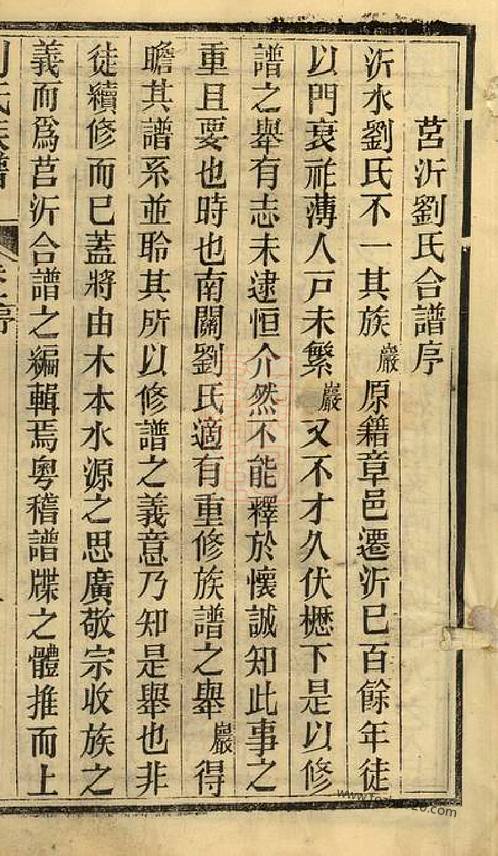 莒沂劉氏合譜序
沂水劉氏不一其族巖原籍章邑遷沂巳百餘年徒
以門衰祚薄人戸未繁巖又不才久伏櫪下是以修
譜之舉有志未逮恒介然不能釋於懷誠知此事之
重且要也時也南關劉氏適有重修族譜之舉巖得
瞻其譜系並聆其所以修譜之義意乃知是舉也非
徒續修而巳蓋將由木本水源之思廣敬宗收族之
義而爲莒沂合譜之編輯焉粵稽譜牒之體推而上